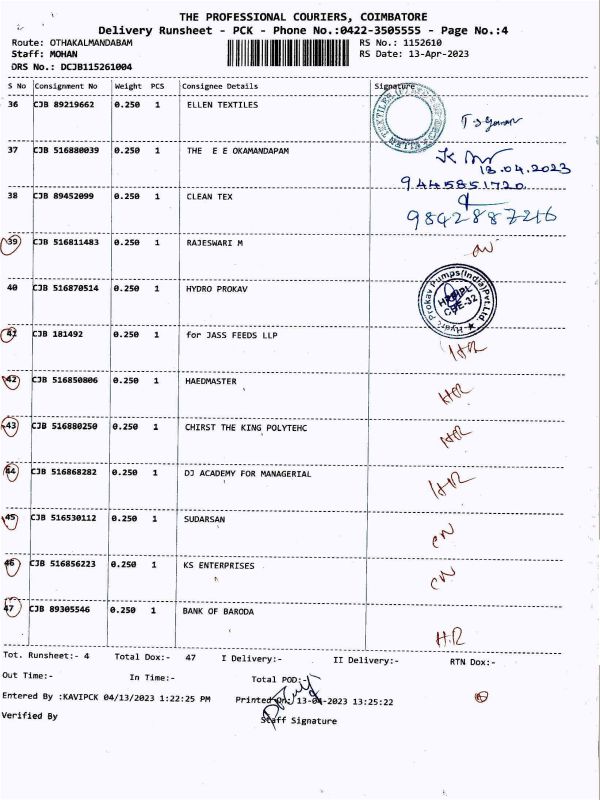 THE PROFESSIONAL COURIERS, COIMBATORE
Delivery Runsheet - PCK - Phone No.:0422-3505555 - Page No.:4
Route: OTHAKALMANDABAM RS No.: 1152610
Staff: MOHAN RS Date: 13-Apr-2023
DRS No.: DCJB115261004
S No Consignment No Weight PCS Consignee Details Signature
36 CJB 89219662 0.250 1 ELLEN TEXTILES
37 CJB 516880039 0.250 1 THE E E OKAMANDAPAM
13.04.2023
9445851720
38 CJB 89452099 0.250 1 CLEAN TEX
9842887216
39 CJB 516811483 0.250 1 RAJESWARI M
40 CJB 516870514 0.250 1 HYDRO PROKAV
Hydro Prokav Pumps(India)Pvt.Ltd.
CBE-32
41 CJB 181492 0.250 1 for JASS FEEDS LLP
HR
42 CJB 516850806 0.250 1 HAEDMASTER
HR
43 CJB 516880250 0.250 1 CHIRST THE KING POLYTEHC
HR
44 CJB 516868282 0.250 1 DJ ACADEMY FOR MANAGERIAL
HR
45 CJB 516530112 0.250 1 SUDARSAN
CN
46 CJB 516856223 0.250 1 KS ENTERPRISES
CN
47 CJB 89305546 0.250 1 BANK OF BARODA
H.R
Tot. Runsheet:- 4 Total Dox:- 47 I Delivery:- II Delivery:- RTN Dox:-
Out Time:- In Time:- Total POD:-
Entered By :KAVIPCK 04/13/2023 1:22:25 PM Printed On: 13-04-2023 13:25:22
Verified By Staff Signature